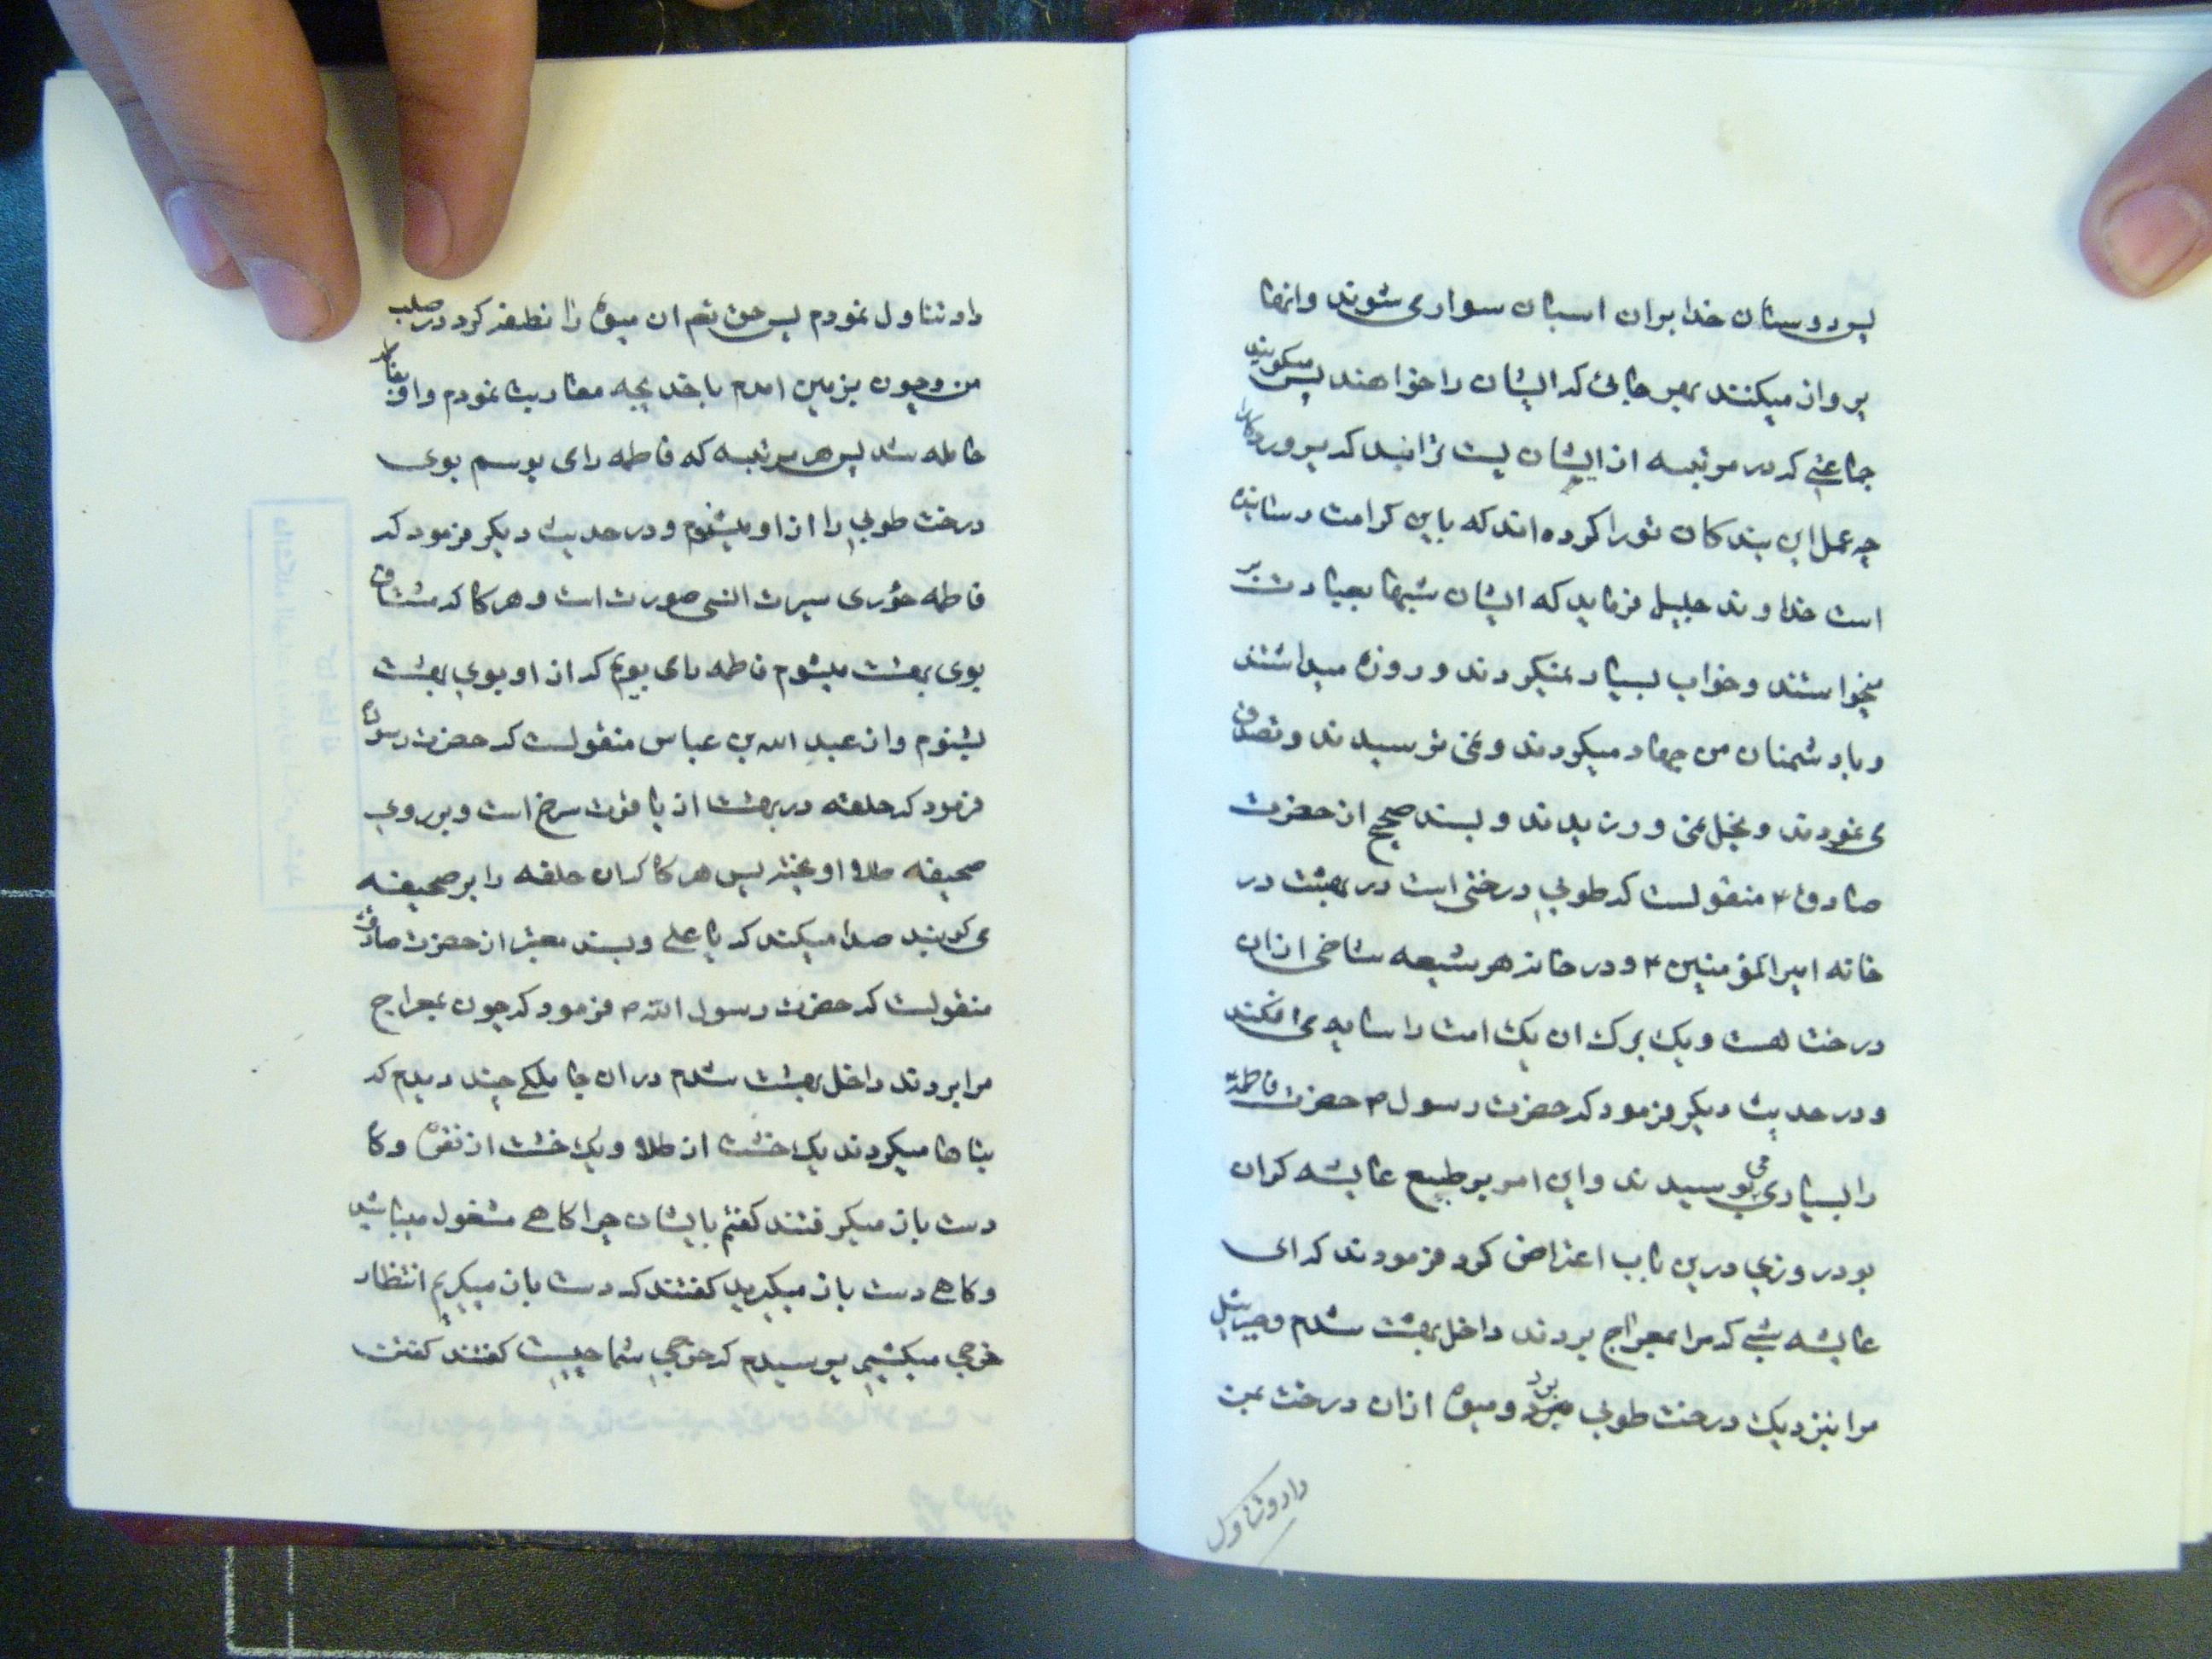 پس دوستان خدا بران اسبان سوار می شوند و انها
پرواز میکنند بهر جائی که ایشان را خواهند پس میگویند
جماعتی که در مرتبه از ایشان پست ترانید که پروردکارا
چه عمل این بندکان تو را کرده اند که باین کرامت رسانیده
است خداوند جلیل فرماید که ایشان شبها بعبادت بر
میخواستند و خواب بسیار نمیکردند و روزه میداشتند
و با دشمنان من جهاد میکردند و نمی ترسیدند و تصدق
می نمودند و بخل نمی ورزیدند و بسند صحیح از حضرت
صادق ۴ منقولست که طوبی درختی است در بهشت در
خانه امیرالمؤمنین ۴ و در خانه هر شیعه شاخی ازان
درخت هست و یک برک ان یک امت را سایه می افکند
و در حدیث دیکر فرمود که حضرت رسول ص حضرت فاطمه
را بسیار می بوسیدند و این امر بر طبع عایشه کران
بود روزی درین باب اعتراض کرد فرمودند که ای
عایشه شبی که مرا بمعراج بردند داخل بهشت شدم و جبرئیل
مرا بنزدیک درخت طوبی برد و میوهٔ ازان درخت بمن
داد و تناول
داد تناول نمودم پس حق تعم ان میوه را نطفه کرد در صلب
من و چون بزمین امدم با خدیجه مقاربت نمودم و او بفاطمه
حامله شد پس هر مرتبه که فاطمه را می بوسم بوی
درخت طوبی را از او میشنوم و در حدیث دیکر فرمود که
فاطمه حوری سیرت انسی صورت است و هرکاه که مشتاق
بوی بهشت میشوم فاطمه را می بویم که از او بوی بهشت
بشنوم و از عبد الله بن عباس منقولست که حضرت رسول
فرمود که حلقه در بهشت از یاقوت سرخ است و بر روی
صحیفه طلا اویخته پس هرکاه که ان حلقه را بر صحیفه
می کوبند صدا میکند که یا علی و بسند معتبر از حضرت صادق
منقولست که حضرت رسول الله ص فرمود که چون بمعراج
مرا بردند داخل بهشت شدم دران جا ملکی چند دیدم که
بناها میکردند یک خشت از طلا و یک خشت از نقره و کاه
دست باز میکرفتند کفتم بایشان چرا کاهی مشغول میباشید
و کاهی دست باز میکیرید کفتند که دست باز میکیریم انتظار
خرجی میکشیم پرسیدم که خرجی شما چیست کفتند کفتن